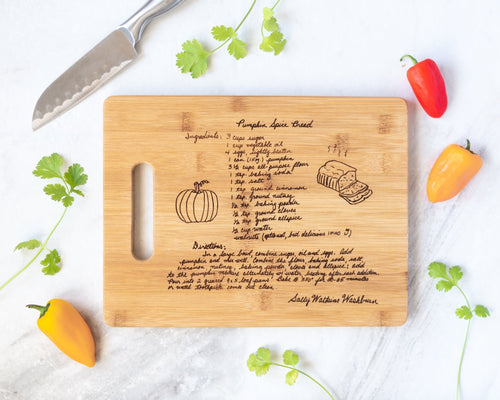 Pumpkin Spice Bread
Ingredients: 3 cups sugar
1 cup vegetable oil
4 eggs, lightly beaten
1 can (15oz) pumpkin
3½ cups all-purpose flour
1 tsp. baking soda
1 tsp salt
1 tsp ground cinnamon
1 tsp. ground nutmeg
½ tsp. baking powder
½ tsp ground cloves
½ tsp ground allspice
½ cup water
walnuts (optional, but delicious IMHO
Directions:
In a large bowl, combine sugar, oil and eggs. Add
pumpkin and mix well. Combine the flour, baking soda, salt,
cinnamon, nutmeg, baking powder, cloves and allspice; add
to the pumpkin mixture alternately w/ water, beating after each addition.
Pour into 2 greased 9x5 loaf pans. Bake @ 350° for 60-65 minutes
or until toothpick comes out clean.
Sally Watkins Washburn